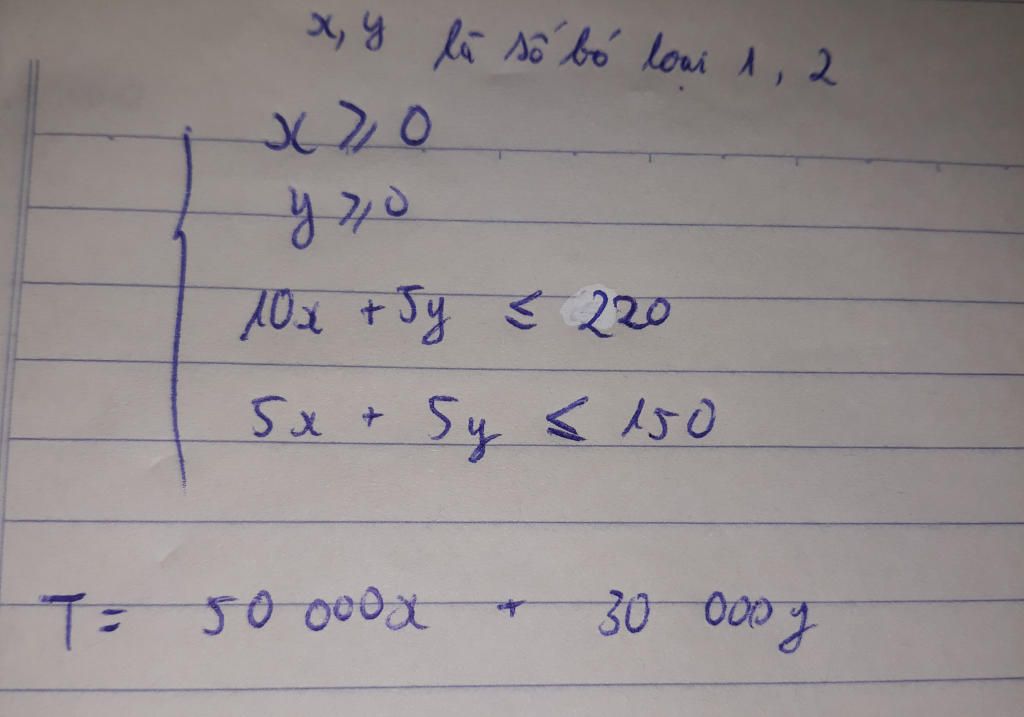 x, y là số bó loại 1, 2
x ⩾ 0
y ⩾ 0
10x + 5y ≤ 220
5x + 5y ≤ 150
T = 50 000x + 30 000y